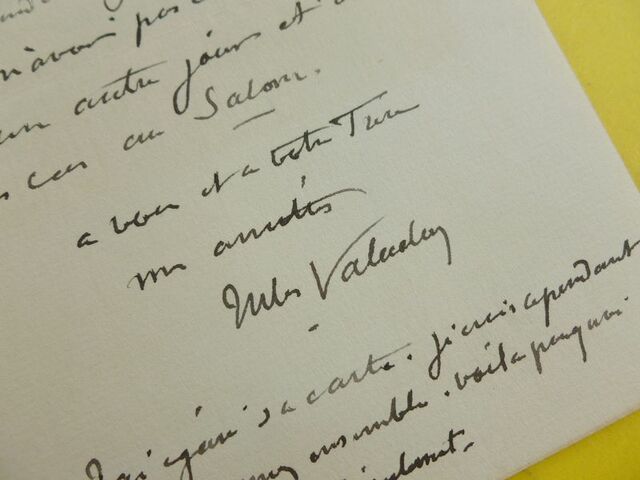 n'avoir pas
un autre jours et
cas au Salon.
a vous et a votre
mes amitiés
Jules Valadon
J'ai égaré sa carte. Je crois cependant
ensemble. voilà pourquoi